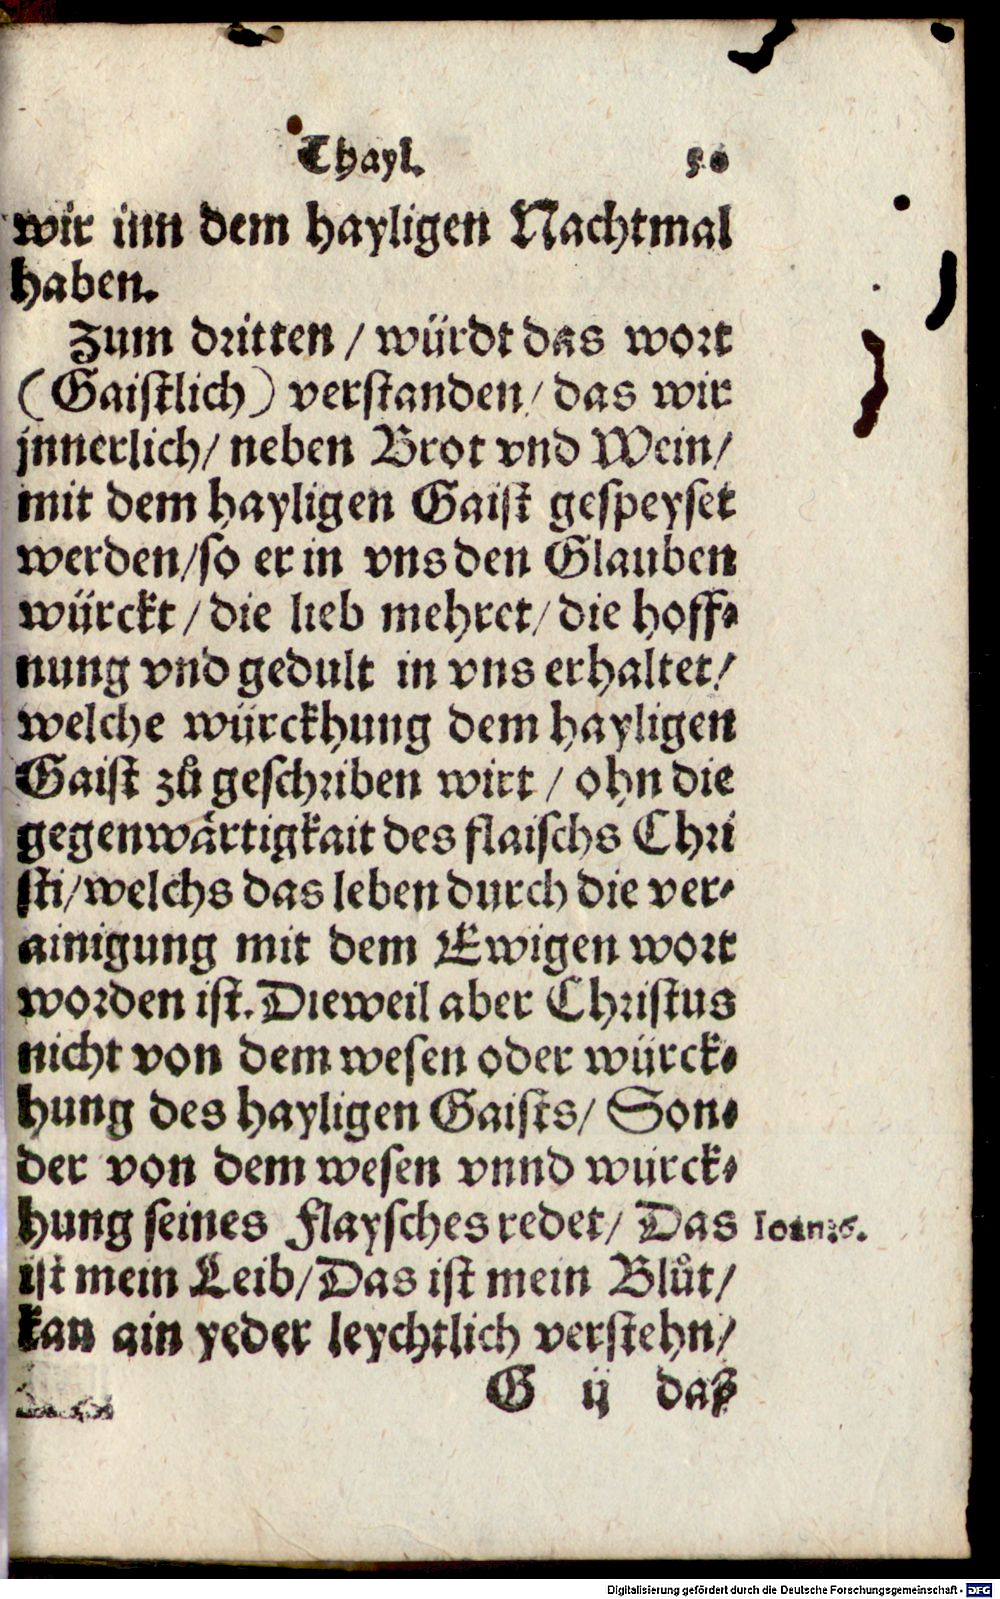 Thayl. 50
wir inn dem hayligen Nachtmal
haben.
Zum dritten / würdt das wort
(Gaistlich) verstanden / das wir
jnnerlich / neben Brot vnd Wein /
mit dem hayligen Gaist gespeyset
werden / so er in vns den Glauben
würckt / die lieb mehret / die hoff-
nung vnd gedult in vns erhaltet /
welche würckhung dem hayligen
Gaist zů geschriben wirt / ohn die
gegenwärtigkait des flaischs Chri
sti / welchs das leben durch die ver-
ainigung mit dem Ewigen wort
worden ist. Dieweil aber Christus
nicht von dem wesen oder würck-
hung des hayligen Gaists / Son-
der von dem wesen vnnd würck-
hung seines Flaysches redet / Das Ioan: 6.
ist mein Leib / Das ist mein Blůt /
kan ain yeder leychtlich verstehn /
G ij das
Digitalisierung gefördert durch die Deutsche Forschungsgemeinschaft - DFG